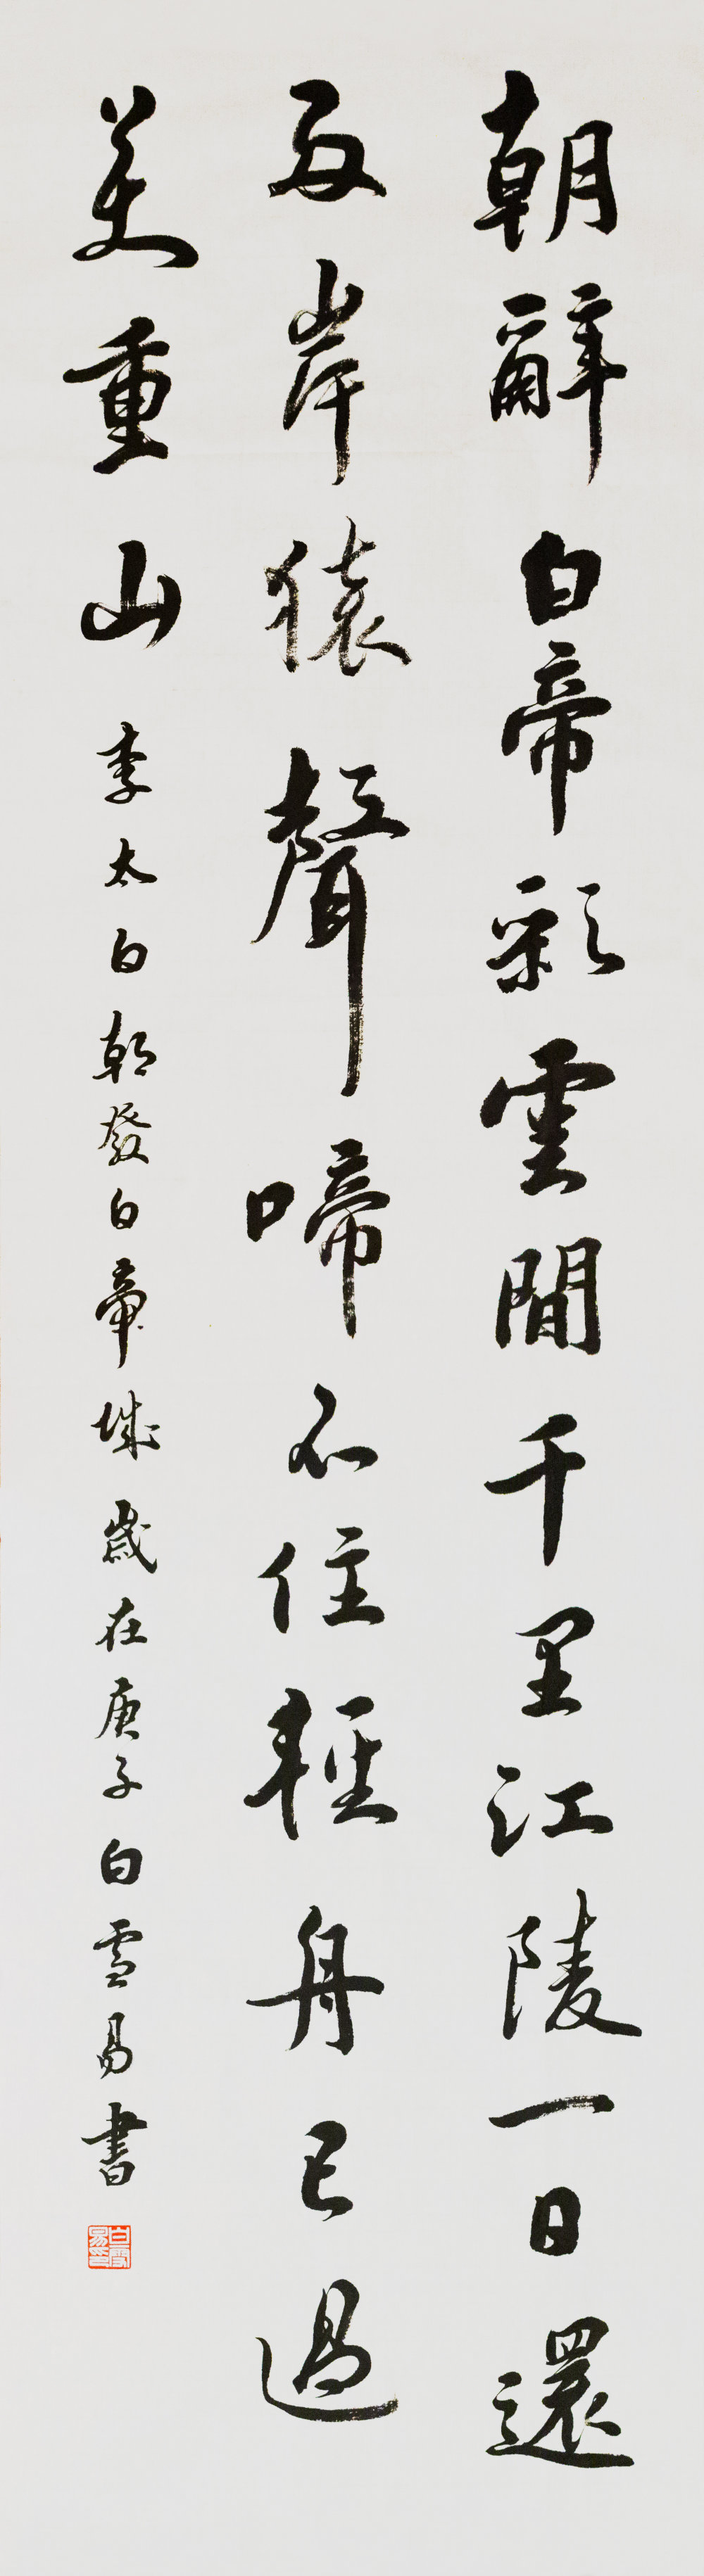 朝辭白帝彩雲間千里江陵一日還
兩岸猿聲啼不住輕舟已過
萬重山 李太白朝發白帝城歲在庚子白雪易書
白雪易印